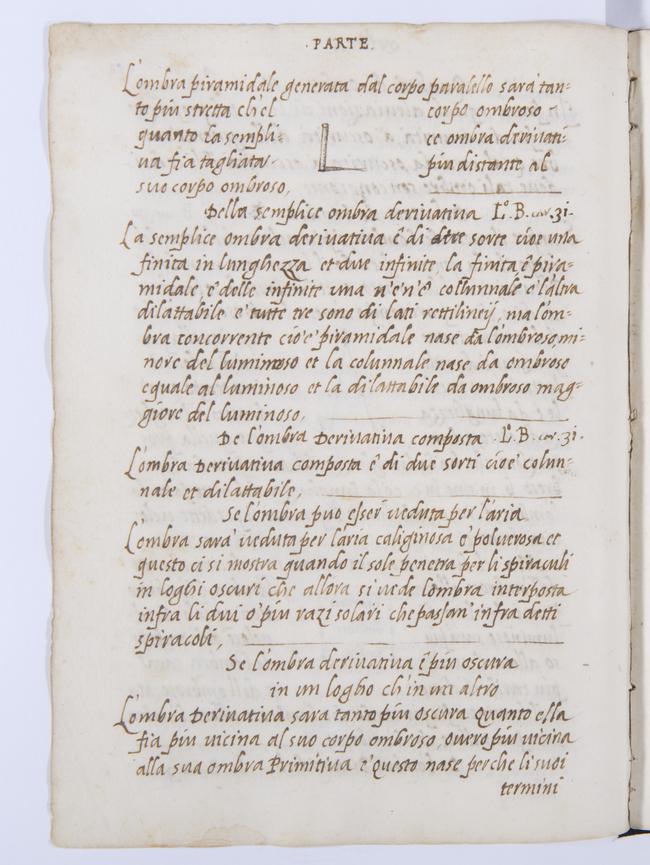 · PARTE ·
L'ombra piramidale generata dal corpo paralello sara tan=
to piu stretta ch'el corpo ombroso ·
quanto la sempli= ce ombra derivati=
va fia tagliata · piu distante al
suo corpo ombroso,
Della semplice ombra derivativa Lº. B. car. 31.
La semplice ombra derivativa è di tre sorte cioe una
finita in lunghezza et due infinite, la finita è pira=
midale, e delle infinite una n'è n'è collunnale e l'altra
dilattabile e tutte tre sono di lati rettilinej, ma l'om=
bra concorrente cio'e piramidale nase da l'ombroso mi=
nore del luminoso et la colunnale nase da ombroso
equale al luminoso et la dilattabile da ombroso mag=
giore del luminoso,
De l'ombra Derivativa composta Lº. B. car. 31.
L'ombra Derivativa composta è di due sorti cioe colun=
nale et dilattabile,
Se l'ombra puo esser veduta per l'aria
L'ombra sara veduta per l'aria caliginosa e polverosa et
questo ci si mostra quando il sole penetra per li spiraculi
in loghi oscuri che allora si vede l'ombra interposta
infra li dui o piu razi solari che pasan' infra detti
spiracoli,
Se l'ombra derivativa è piu oscura
in un logho ch'in un altro
L'ombra Derivativa sara tanto piu oscura quanto ella
fia piu vicina al suo corpo ombroso, overo piu vicina
alla sua ombra Primitiva e questo nase perche li suoi
termini